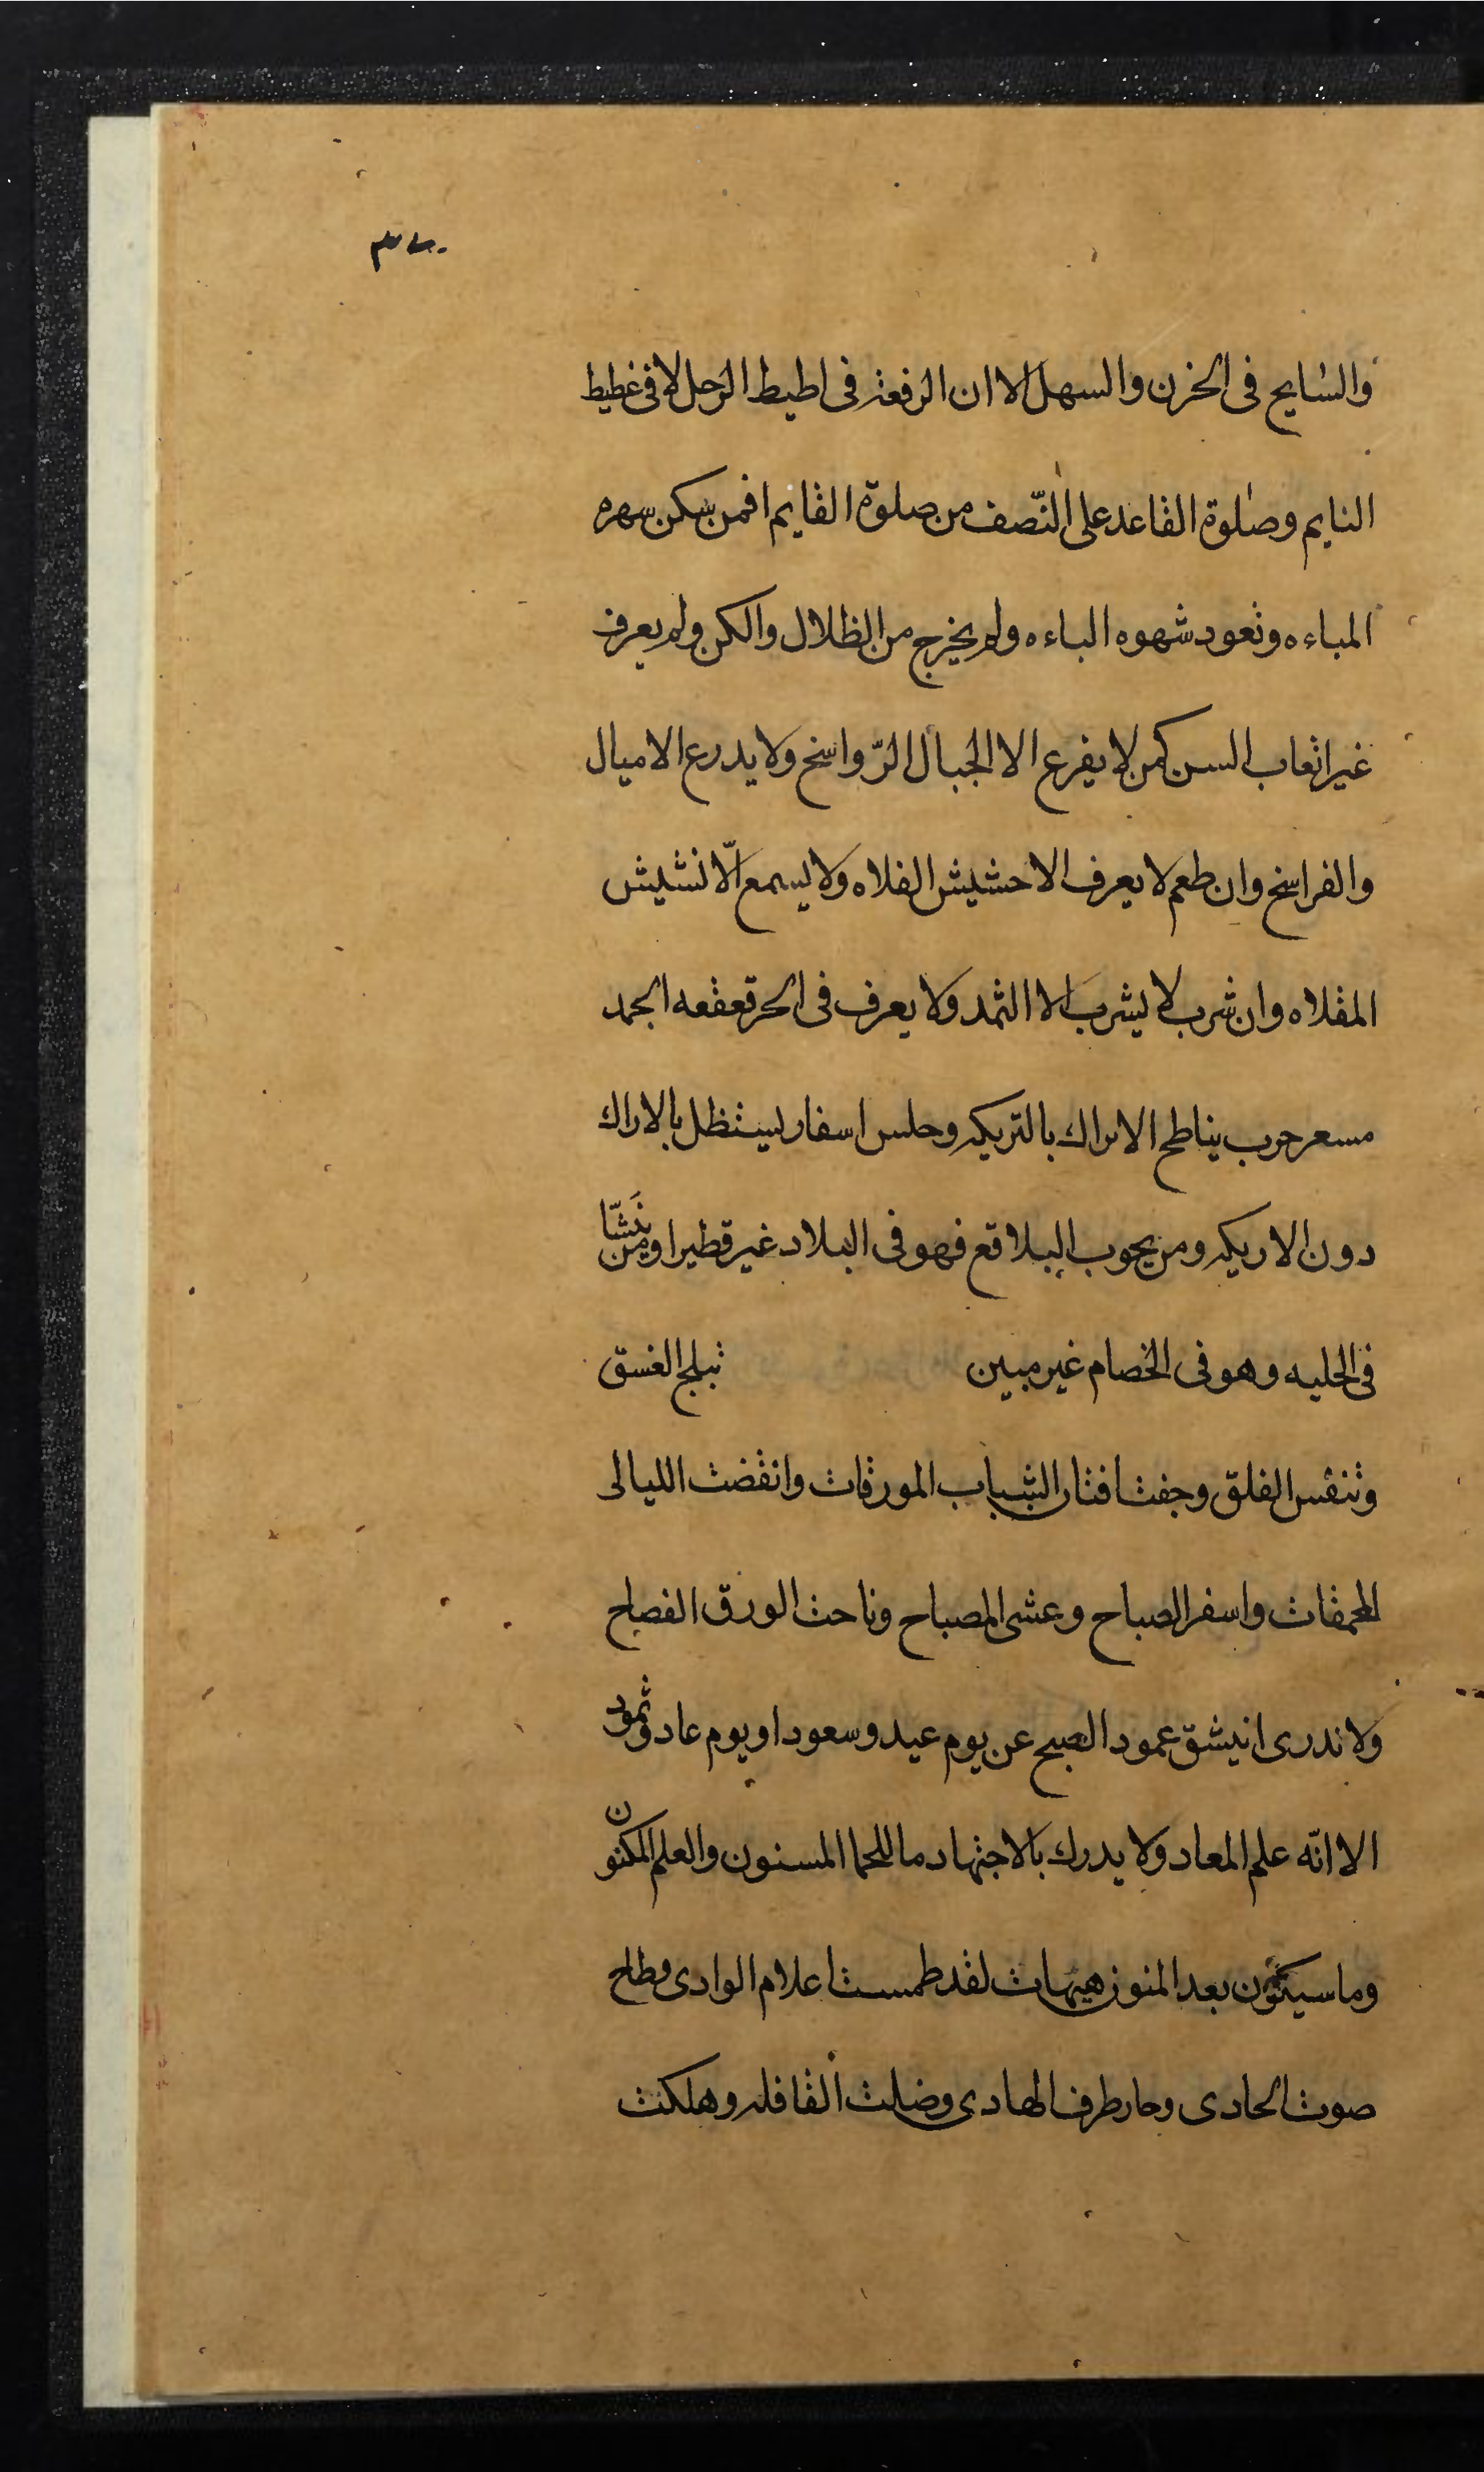 والسایح فی الخزن والسهل الا ان الرفعة فی اطیط الرحل لا فی غطیط
النایم وصلوة القاعد علی النّصف من صلوة القایم افمن سکن سهره
المباءه وتعود شهوه الباءه ولم یخرج من الظلال والکن ولم یعرف
غیر اتعاب السن کمن لا یفرع الا الجبال الرّواسخ ولا یدرع الامیال
والفراسخ وان طعم لا یعرف الا حشیش الفلاه ولا یسمع الّا نشیش
المقلاه وان شرب لا یشرب الا الثمد ولا یعرف فی الحر قعقعه الجمد
مسعر حرب یناطح الاتراك بالتریکه وحلس اسفار یستظل بالاراك
دون الاریکه ومن یجوب البلاقع فهو فی البلاد غیر قطیر اومن ینَشّا
فی الحلیه وهو فی الخصام غیر مبین تبلج الغسق
وتنفس الفلق وجفت افنان الشباب المورقات وانقضت اللیالی
المحمقات واسفر الصباح وعشی المصباح وناحت الورق الفصاح
ولا ندری انیشق عمود الصبح عن یوم عید وسعود او یوم عاد وثمود
الا انّه علم المعاد ولا یدرك بالاجتهاد ما للحما المسنون والعلم المکنون
وما سیکون بعد المنون هیهات لقد طمست اعلام الوادی وطاح
صوت الحادی وحار طرف الهادی وضلت القافله وهلکت